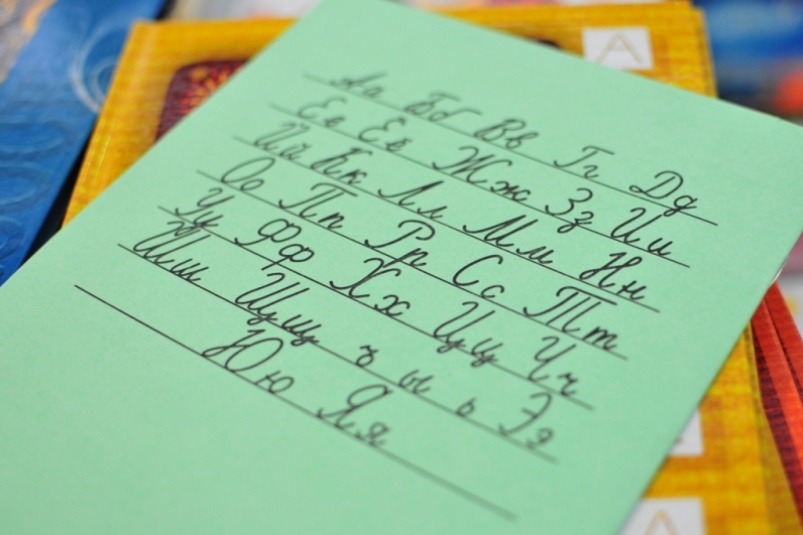 А
Аа Бб Вв Гг Дд
Ее Ёё Жж Зз Ии
Йй Кк Лл Мм Нн
Оо Пп Рр Сс Тт
Уу Фф Хх Цц Чч
Шш Щщ ъ ы ь Ээ
Юю Яя
А